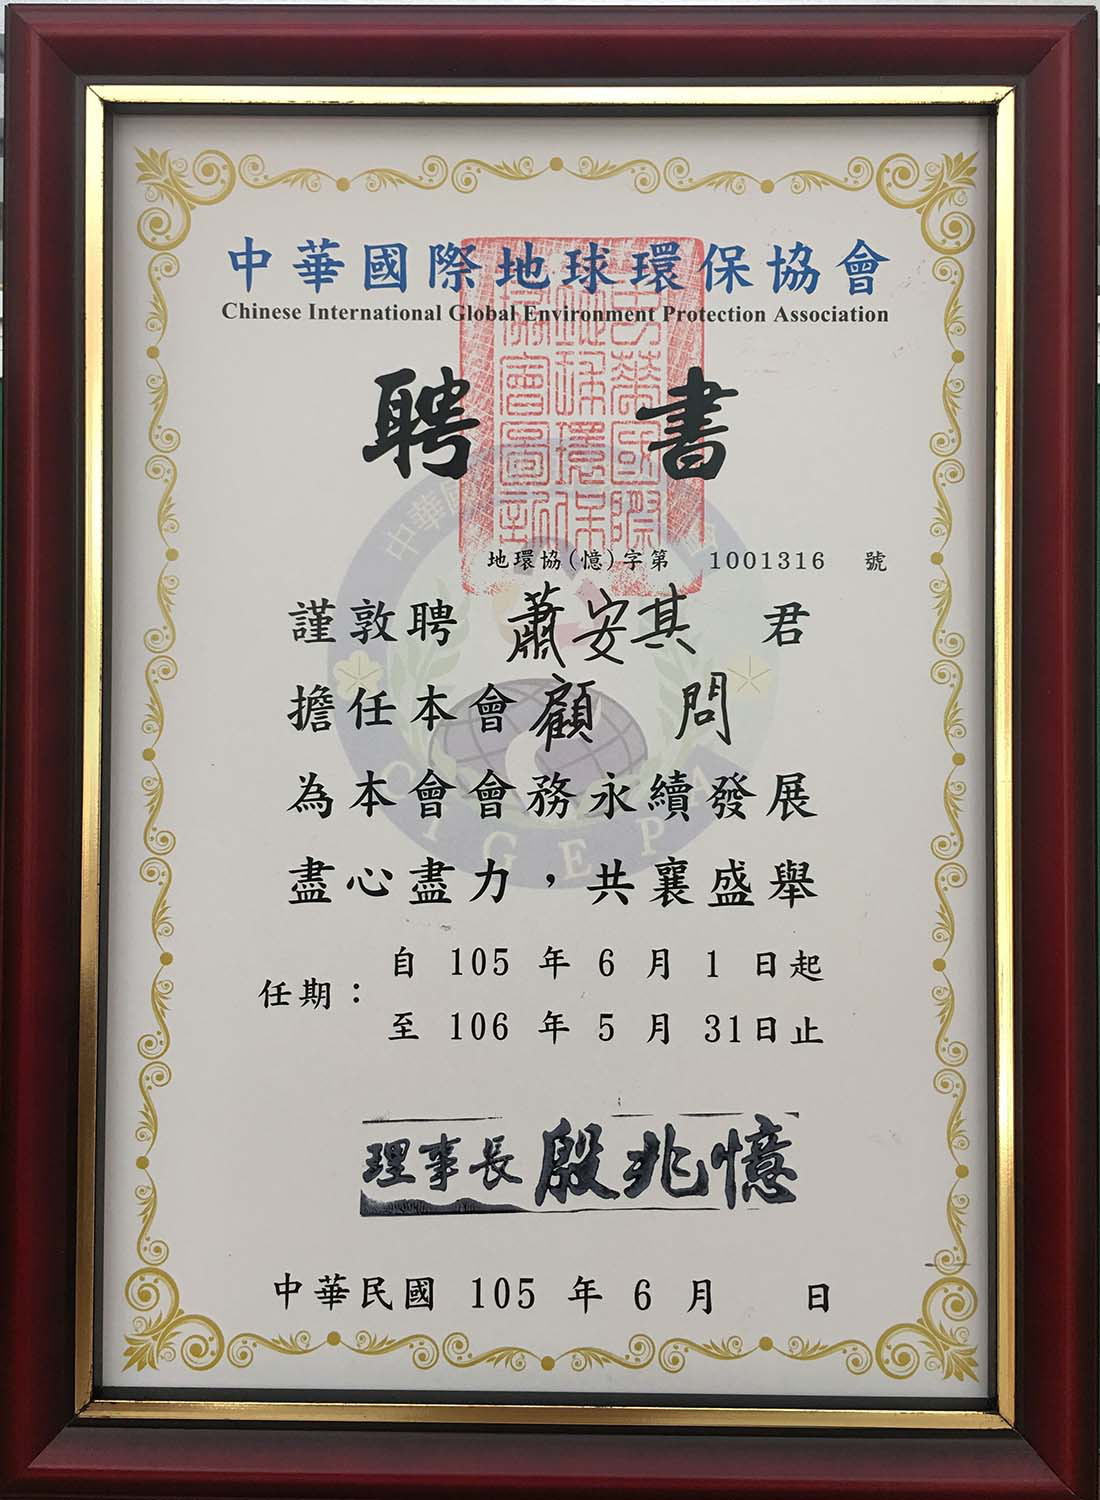 中華國際地球環保協會
Chinese International Global Environment Protection Association
聘書
地環協(憶)字第 1001316 號
謹敦聘 蕭安其 君
擔任本會顧問
為本會會務永續發展
盡心盡力，共襄盛舉
任期：
自 105 年 6 月 1 日起
至 106 年 5 月 31日止
理事長 殷兆憶
中華民國 105 年 6 月 日
中華國際地球環保協會圖記
中華國 會
CIGEPA